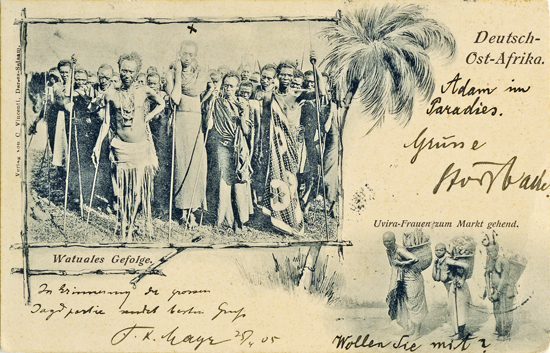 Deutsch-
Ost-Afrika.
Verlag von C. Vincenti, Dar-es-Salaam.
Adam im
Paradies.
Grüsse
Watuales Gefolge.
Uvira-Frauen zum Markt gehend.
In Erinnerung der grossen
Jagdpartie sendet besten Gruss
F. K. Mayr
05
Wollen Sie mit?